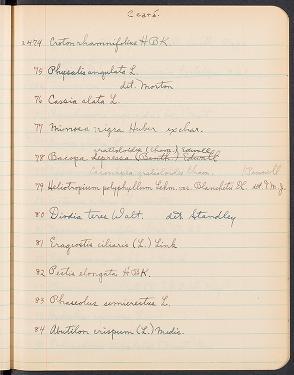 Ceará.
2474 Croton rhamnifolius H.B.K.
75 Physalis angulata L.
det. Morton
76 Cassia alata L.
77 Mimosa nigra Huber ex char.
gratioloides (Cham.) Edwall
78 Bacopa depressa (Benth.) Edwall
gratioloides Cham. Pennell
79 Heliotropium polyphyllum Lehm. var. Blanchetii DC. det. I.M.J.
80 Diodia teres Walt. det. Standley
81 Eragrostis ciliaris (L.) Link
82 Pectis elongata HBK.
83 Phaseolus semierectus L.
84 Abutilon crispum (L.) Medic.